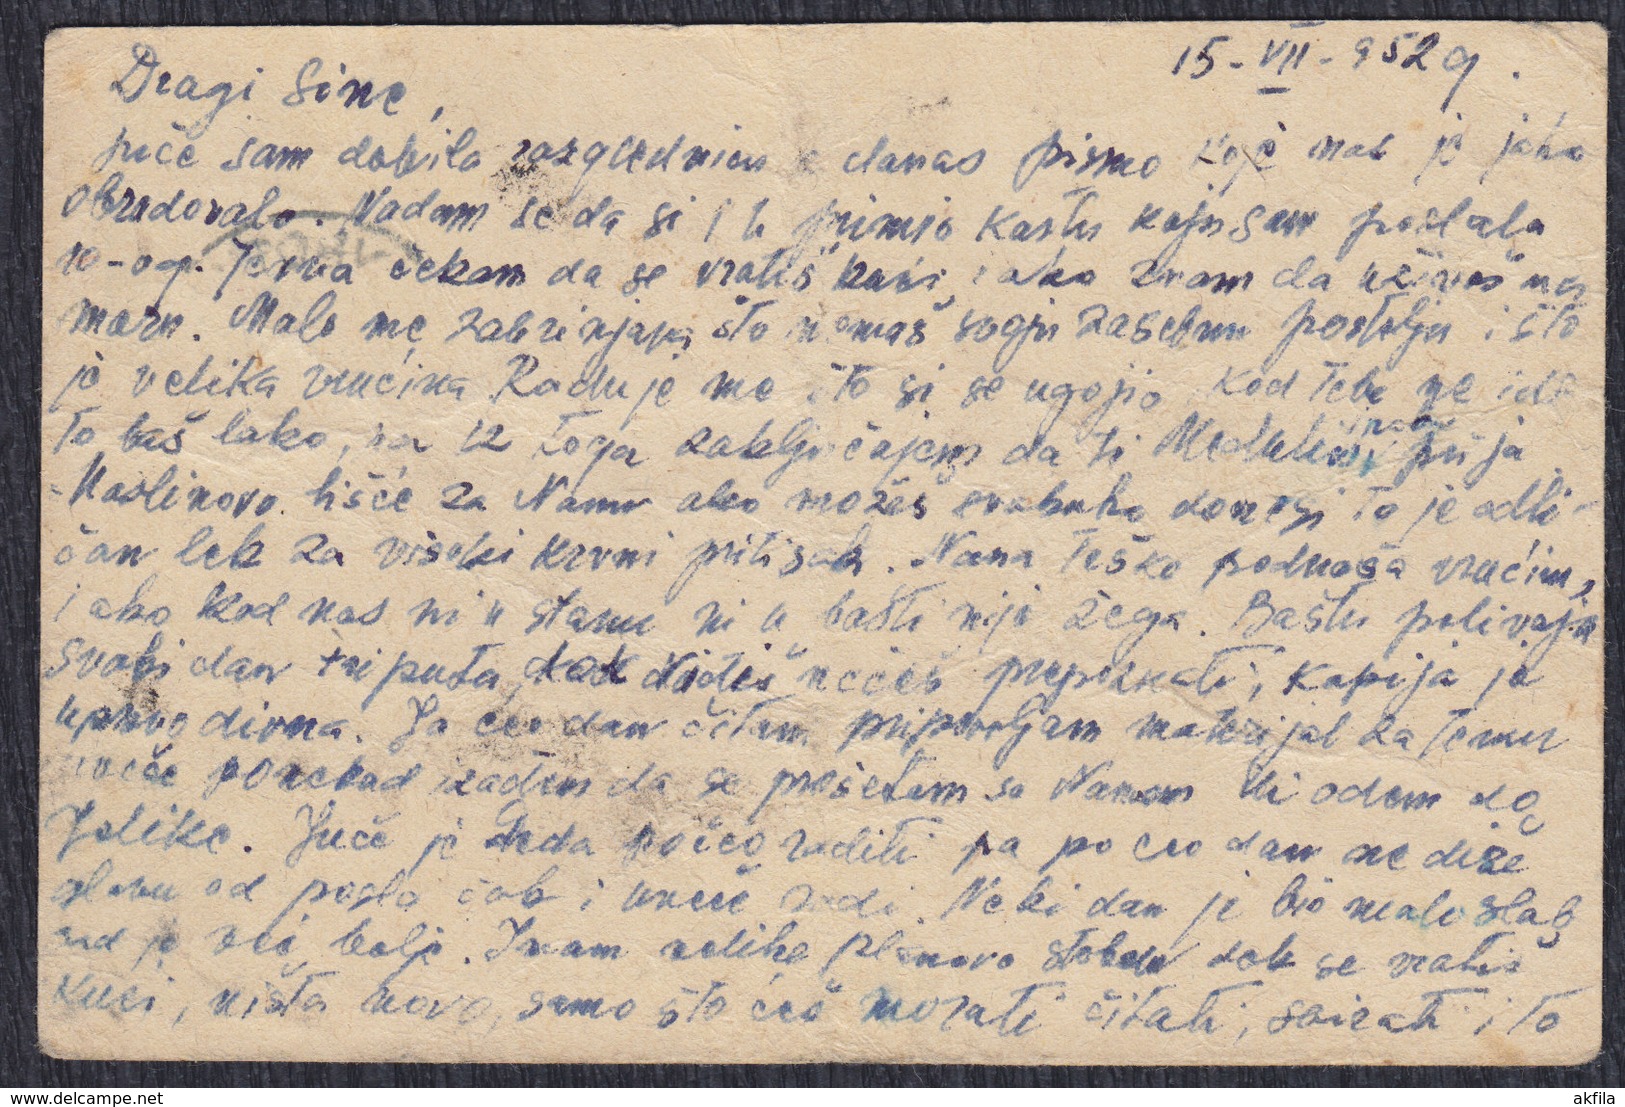 15-VII-952 g.
Dragi sine,
juče sam dobila razglednicu a danas pismo koje nas je jako
obradovalo. Nadam se da si i ti primio kartu koju sam poslala
10-og. Jedva čekam da se vratiš kući, iako znam da uživaš na
moru. Malo me zabrinjava što nemaš svoju zasebnu postelju i što
je velika vrućina Raduje me što si se ugojio, kod tebe ne ide
to baš lako, pa iz toga zaključujem da ti Medulin prija
Maslinovo lišće za Nanu ako možeš svakako donesi to je odli-
čan lek za visoki krvni pritisak. Nana teško podnosi vrućinu,
iako kod nas ni u stanu ni u bašti nije žega. Baštu polivaju
svaki dan tri puta, kad vidiš nećeš prepoznati, kapija je
upravo divna. Ja ceo dan čitam pripremljam materijal za temu
uveče ponekad izađem da se prošetam sa Nanom ili odem do
Jelike. Juče je Deda počeo raditi pa po ceo dan ne diže
glavu od posla čak i uveče radi. Neki dan je bio malo slab
sad je već bolje. Imam velike planove s tobom dok se vratiš
kući, ništa novo, samo što ćeš morati čitati, svirati i to
akfila